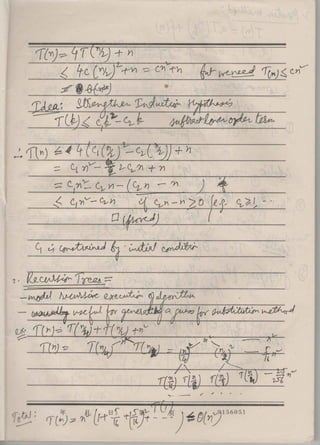 T(n) = 4T(n/2) + n
≤ 4c(n/2)² + n = cn² + n but we need T(n) ≤ cn²
Idea: Strengthen Induction Hypothesis
T(k) ≤ c₁k² - c₂k subtract lower order term
∴ T(n) ≤ 4(c₁(n/2)² - c₂(n/2)) + n
= c₁n² - 2c₂n + n
= c₁n² - c₂n - (c₂n - n)
≤ c₁n² - c₂n if c₂n - n ≥ 0 (e.g. c₂ ≥ 1
□ (proved)
c₁ is constrained by initial condition
2. Recursion Trees =
- model recursive execution of algorithm
- useful for generating a guess for substitution method
ex T(n) = T(n/4) + T(n/2) + n²
T(n) = T(n/4) T(n/2) = (n/4)² n² (n/2)² — n²
— 5/16 n²
T(n/16) T(n/8) T(n/8) T(n/4) — 25/256 n²
Total: T(n) = n² (1 + 5/16 + (5/16)² + ---) ≤ O(n²)